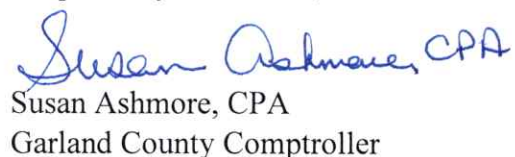 Susan Ashmore, CPA
Susan Ashmore, CPA
Garland County Comptroller